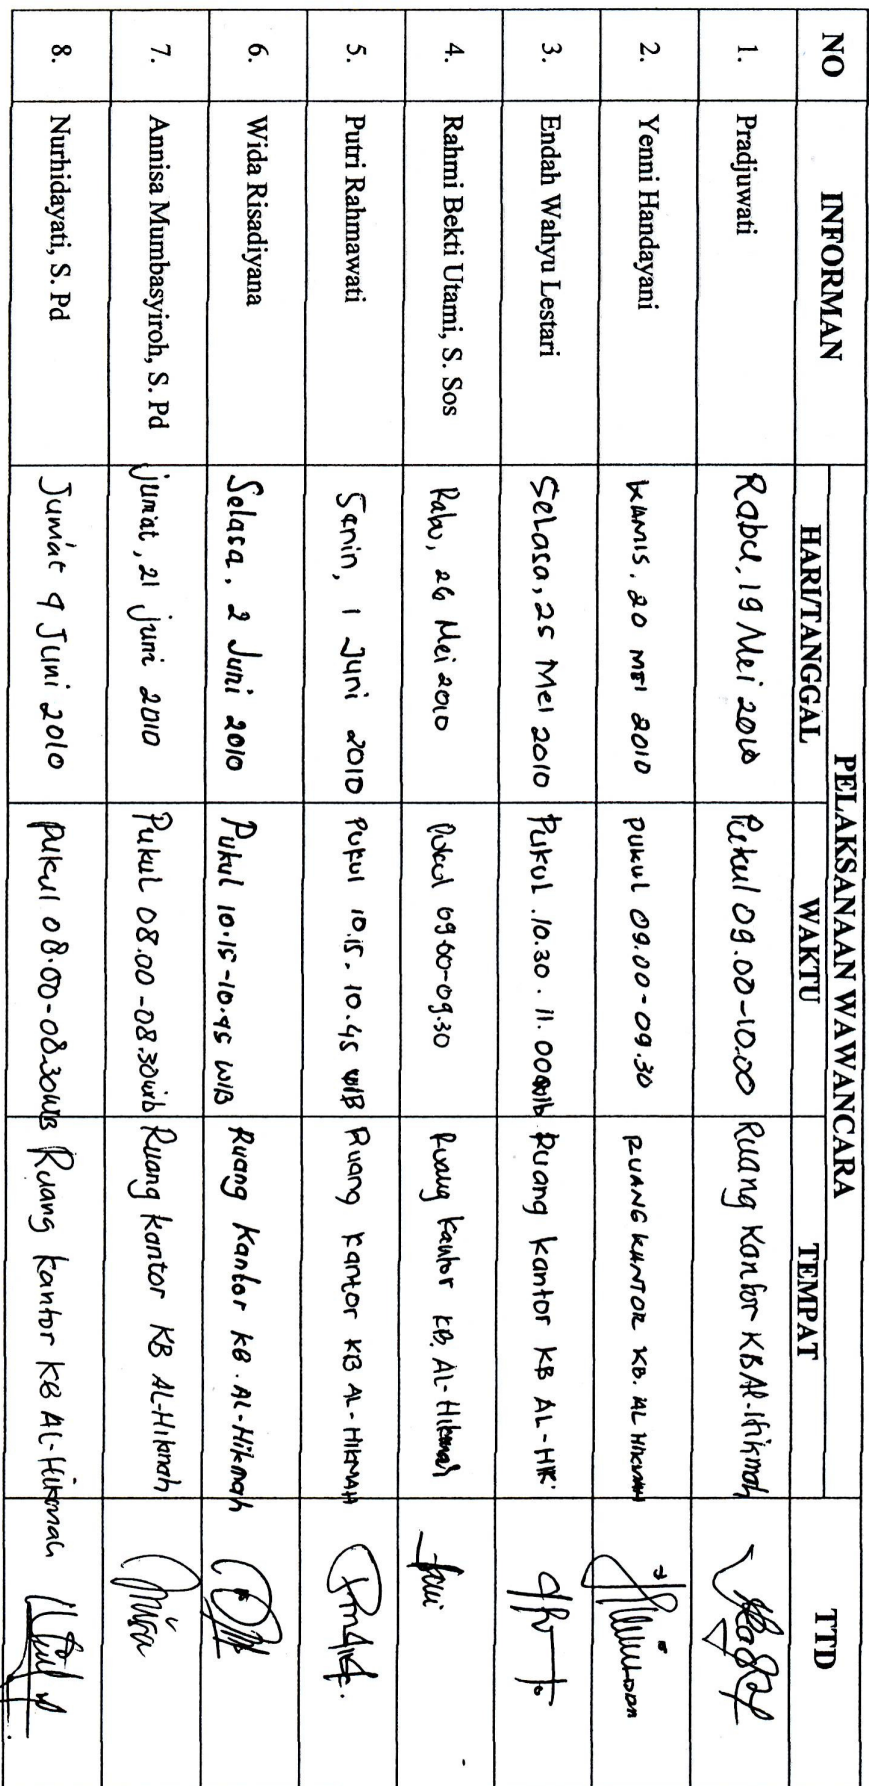 PELAKSANAAN WAWANCARA
NO INFORMAN HARI/TANGGAL WAKTU TEMPAT TTD
1. Pradjuwati Rabu, 19 Mei 2010 Pukul 09.00-10.00 Ruang Kantor KB Al-Hikmah
2. Yenni Handayani KAMIS, 20 MEI 2010 PUKUL 09.00-09.30 RUANG KANTOR KB. AL HIKMAH
3. Endah Wahyu Lestari Selasa, 25 Mei 2010 Pukul .10.30 . 11.00 wib Ruang Kantor KB AL-HIK
4. Rahmi Bekti Utami, S. Sos Rabu, 26 Mei 2010 Pukul 09.00-09.30 Ruang Kantor KB. AL-Hikmah
5. Putri Rahmawati Senin, 1 Juni 2010 Pukul 10.15. 10.45 WIB Ruang Kantor KB AL-HIKMAH
6. Wida Risadiyana Selasa, 2 Juni 2010 Pukul 10.15-10.45 WIB Ruang Kantor KB. AL-Hikmah
7. Annisa Mumbasyiroh, S. Pd jumat, 21 juni 2010 Pukul 08.00-08.30 wib Ruang kantor KB AL-Hikmah
8. Nurhidayati, S. Pd Jum'at 9 Juni 2010 pukul 08.00-08.30 WIB Ruang kantor KB AL-Hikmah